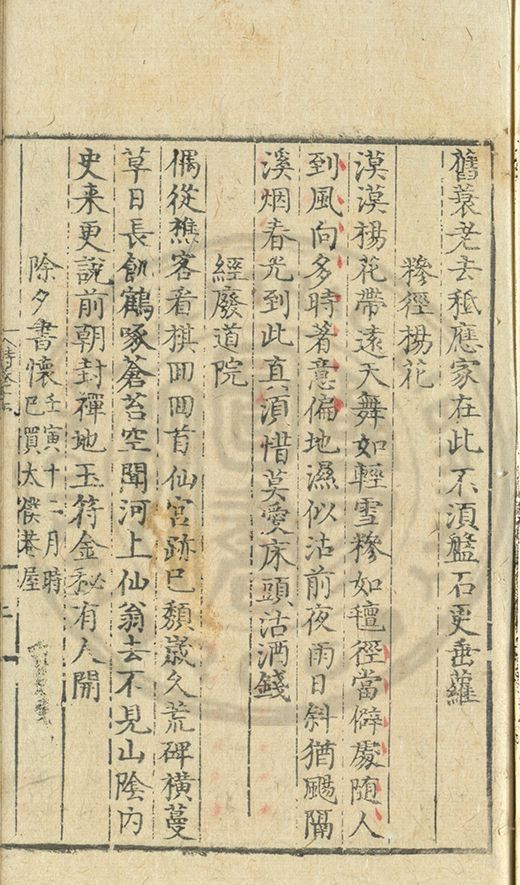 舊蓑老去秪應家在此不湏盤石更垂蘿
糝徑楊花
漠漠楊花帶遠天舞如輕雪糝如氊徑當僻處随人
到風向多時著意偏地濕似沾前夜雨日斜猶颺隔
溪烟春光到此真湏惜莫愛床頭沽酒錢
經廢道院
偶從樵客看棋囬囬首仙宮跡已頽歲久荒碑橫蔓
草日長飢鶴啄蒼苔空聞河上仙翁去不見山陰内
史来更說前朝封禪地玉符金秘有人開
除夕書懷壬寅十二月時
已買太僕巷屋